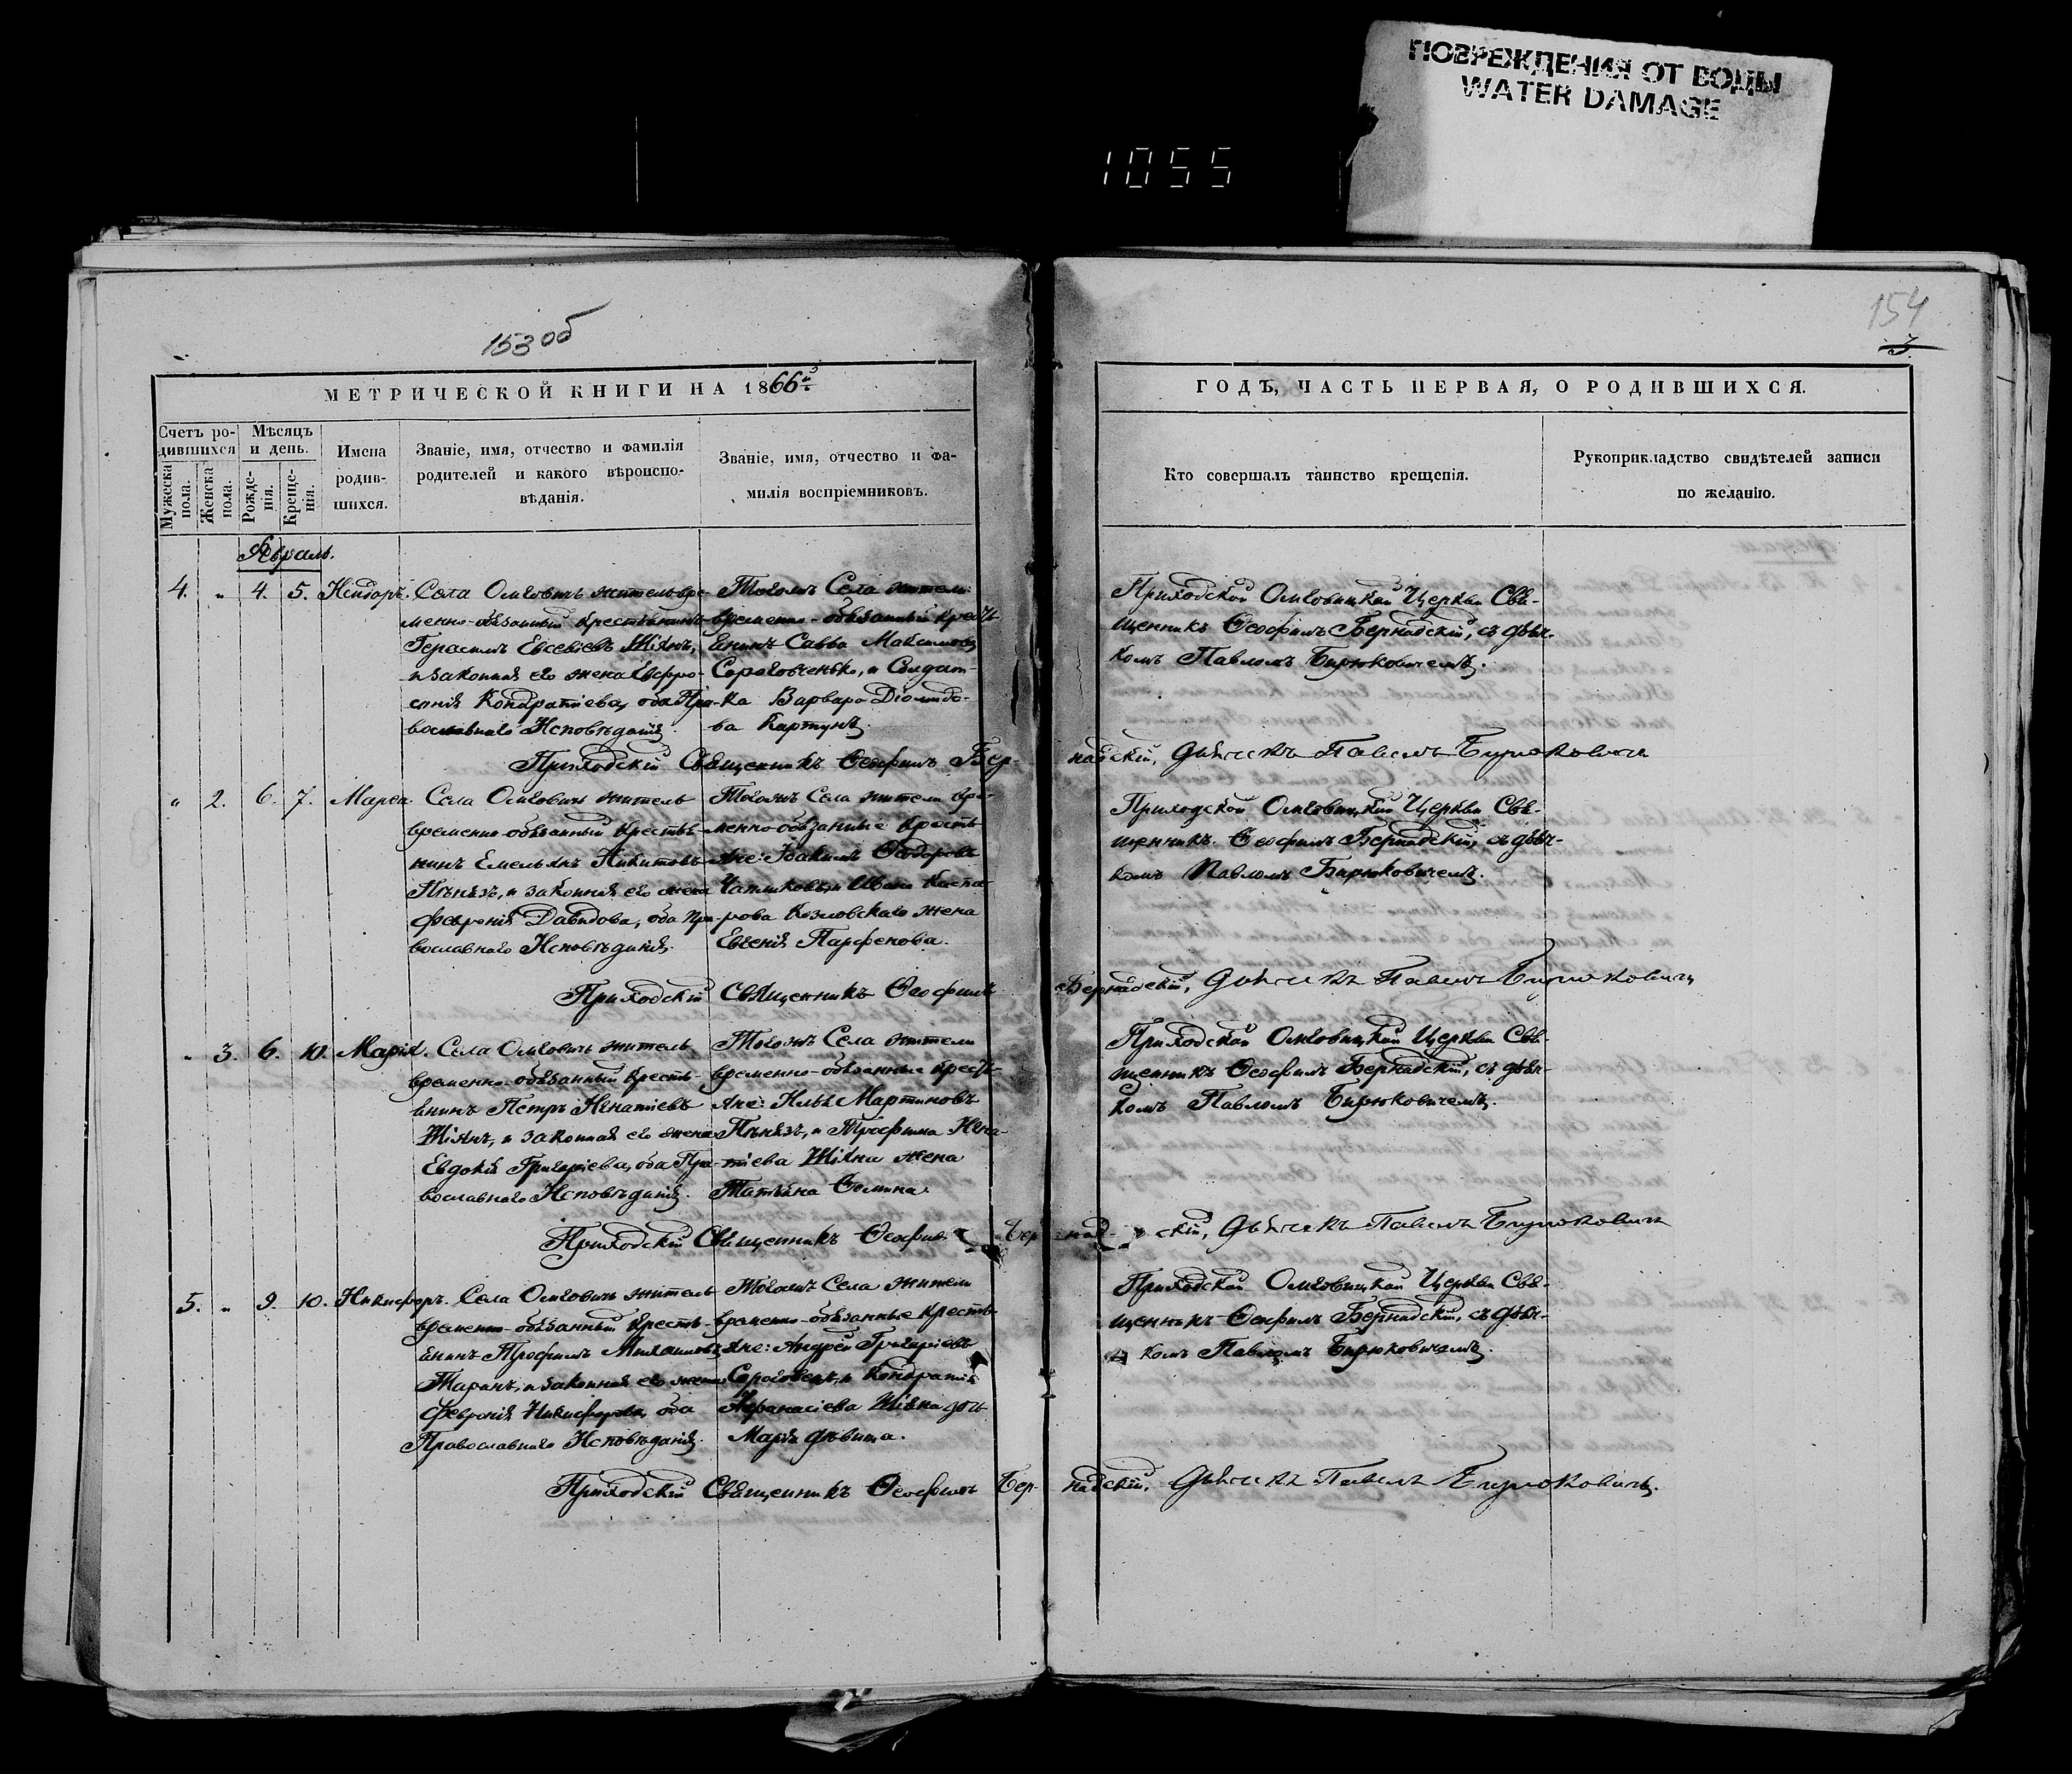 ПОВРЕЖДЕНИЯ ОТ ВОДЫ
WATER DAMAGE
1055
153 об
154
3.
МЕТРИЧЕСКОЙ КНИГИ НА 1866й
ГОДЪ, ЧАСТЬ ПЕРВАЯ, О РОДИВШИХСЯ.
Счетъ ро-
дившихся
Мужеска пола.
Женска пола.
Мѣсяцъ
и день.
Рожде-
нія.
Креще-
нія.
Имена
родив-
шихся.
Званіе, имя, отчество и фамилія
родителей и какого вѣроиспо-
вѣданія.
Званіе, имя, отчество и фа-
милія воспріемниковъ.
Кто совершалъ таинство крещенія.
Рукоприкладство свидѣтелей записи
по желанію.
Февраль.
4. „ 4. 5. Исидоръ.
Села Омговичъ житель вре-
менно-обязанный крестьянинъ
Герасимъ Евсевіевъ Шіянъ,
и законная его жена Евфро-
синія Кондратіева, оба Пра-
вославнаго Исповѣданія.
Тогожъ Села жители
временно-обязанный кресть-
янинъ Савва Максимовъ
и Солдат-
ка Варвара Діомидо-
ва Картунъ.
Приходской Омговицкой Церкви Свя-
щенникъ Ѳеофилъ Бернадскій, съ дьяч-
комъ Павломъ Бирюковичемъ.
Приходскій Священникъ Ѳеофилъ Бернадскій, Дьячекъ Павелъ Бирюковичъ
„ 2. 6. 7. Марѳа.
Села Омговичъ житель
временно-обязанный крестья-
нинъ Емельянъ Никитовъ
Пѣнязь, и законная его жена
Февронія Давидова, оба Пра-
вославнаго Исповѣданія.
Тогожъ Села жители вре-
менно-обязанные кресть-
яне: Іоакимъ Ѳеодоровъ
и Ивана Каспе-
рова Козловскаго жена
Евгенія Парфенова.
Приходской Омговицкой Церкви Свя-
щенникъ Ѳеофилъ Бернадскій, съ дьяч-
комъ Павломъ Бирюковичемъ.
Приходскій Священникъ Ѳеофилъ Бернадскій, Дьячекъ Павелъ Бирюковичъ
„ 3. 6. 10. Марія.
Села Омговичъ житель
временно-обязанный кресть-
янинъ Петръ Игнатіевъ
Шіянъ, и законная его жена
Евдокія Григоріева, оба Пра-
вославнаго Исповѣданія.
Тогожъ Села жители
временно-обязанные кресть-
яне: Илья Мартиновъ
Пѣнязь, и Трофима Игна-
тіева Шіяна жена
Татьяна Ѳомина.
Приходской Омговицкой Церкви Свя-
щенникъ Ѳеофилъ Бернадскій, съ дьяч-
комъ Павломъ Бирюковичемъ.
Приходскій Священникъ Ѳеофилъ Бернадскій, Дьячекъ Павелъ Бирюковичъ
5. „ 9. 10. Никифоръ.
Села Омговичъ житель
временно-обязанный кресть-
янинъ Трофимъ Михаиловъ
Таранъ, и законная его жена
Февронія Никифорова, оба
Православнаго Исповѣданія.
Тогожъ Села жители
временно-обязанные кресть-
яне: Андрей Григоріевъ
и Кондратія
Афанасіева Шіяна дочь
Марія дѣвица.
Приходской Омговицкой Церкви Свя-
щенникъ Ѳеофилъ Бернадскій, съ дьяч-
комъ Павломъ Бирюковичемъ.
Приходскій Священникъ Ѳеофилъ Бернадскій, Дьячекъ Павелъ Бирюковичъ.